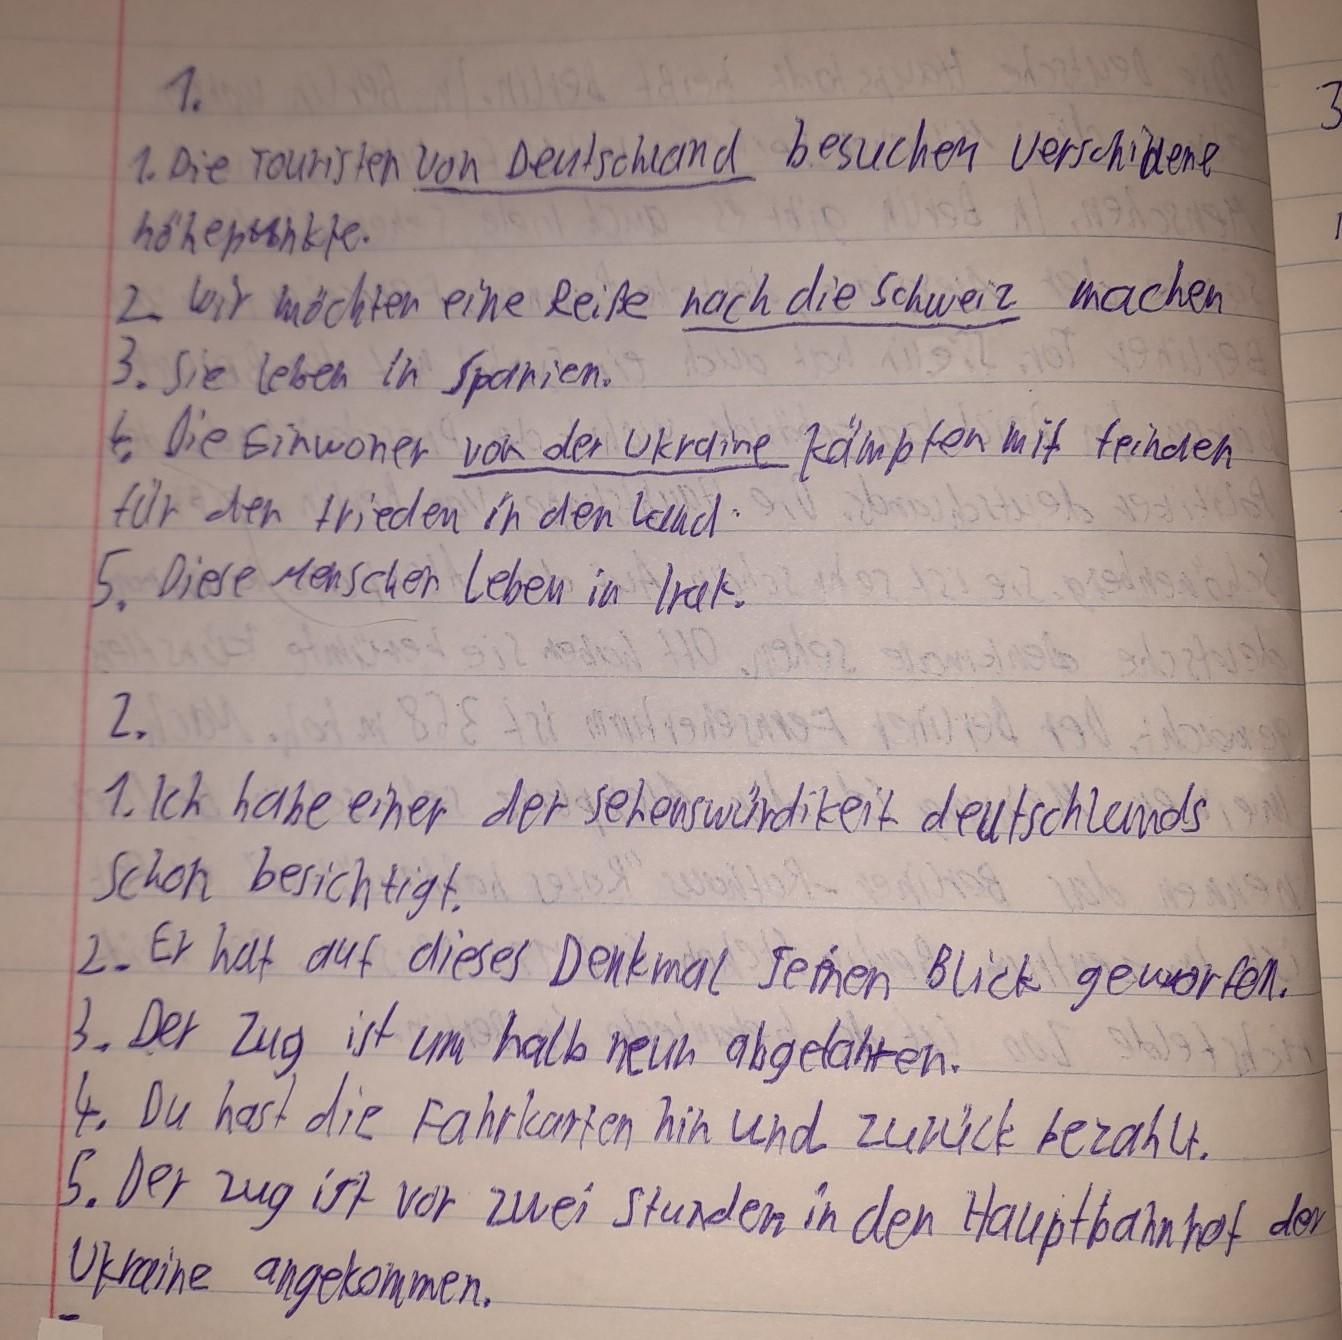 1.
1. Die Touristen von Deutschland besuchen verschidene
höhepunkte.
2. Wir möchten eine Reiße nach die Schweiz machen
3. Sie leben in Spanien.
4. Die Einwoner von der Ukraine kämpfen mit feinden
für den frieden in den Land.
5. Diese Menschen leben in Irak.
2.
1. Ich habe einer der sehenswürdikeit deutschlands
schon besichtigt.
2. Er hat auf dieses Denkmal seinen Blick geworfen.
3. Der Zug ist um halb neun abgefahren.
4. Du hast die Fahrkarten hin und zurück bezahlt.
5. Der zug ist vor zwei stunden in den Hauptbahnhof der
Ukraine angekommen.
3